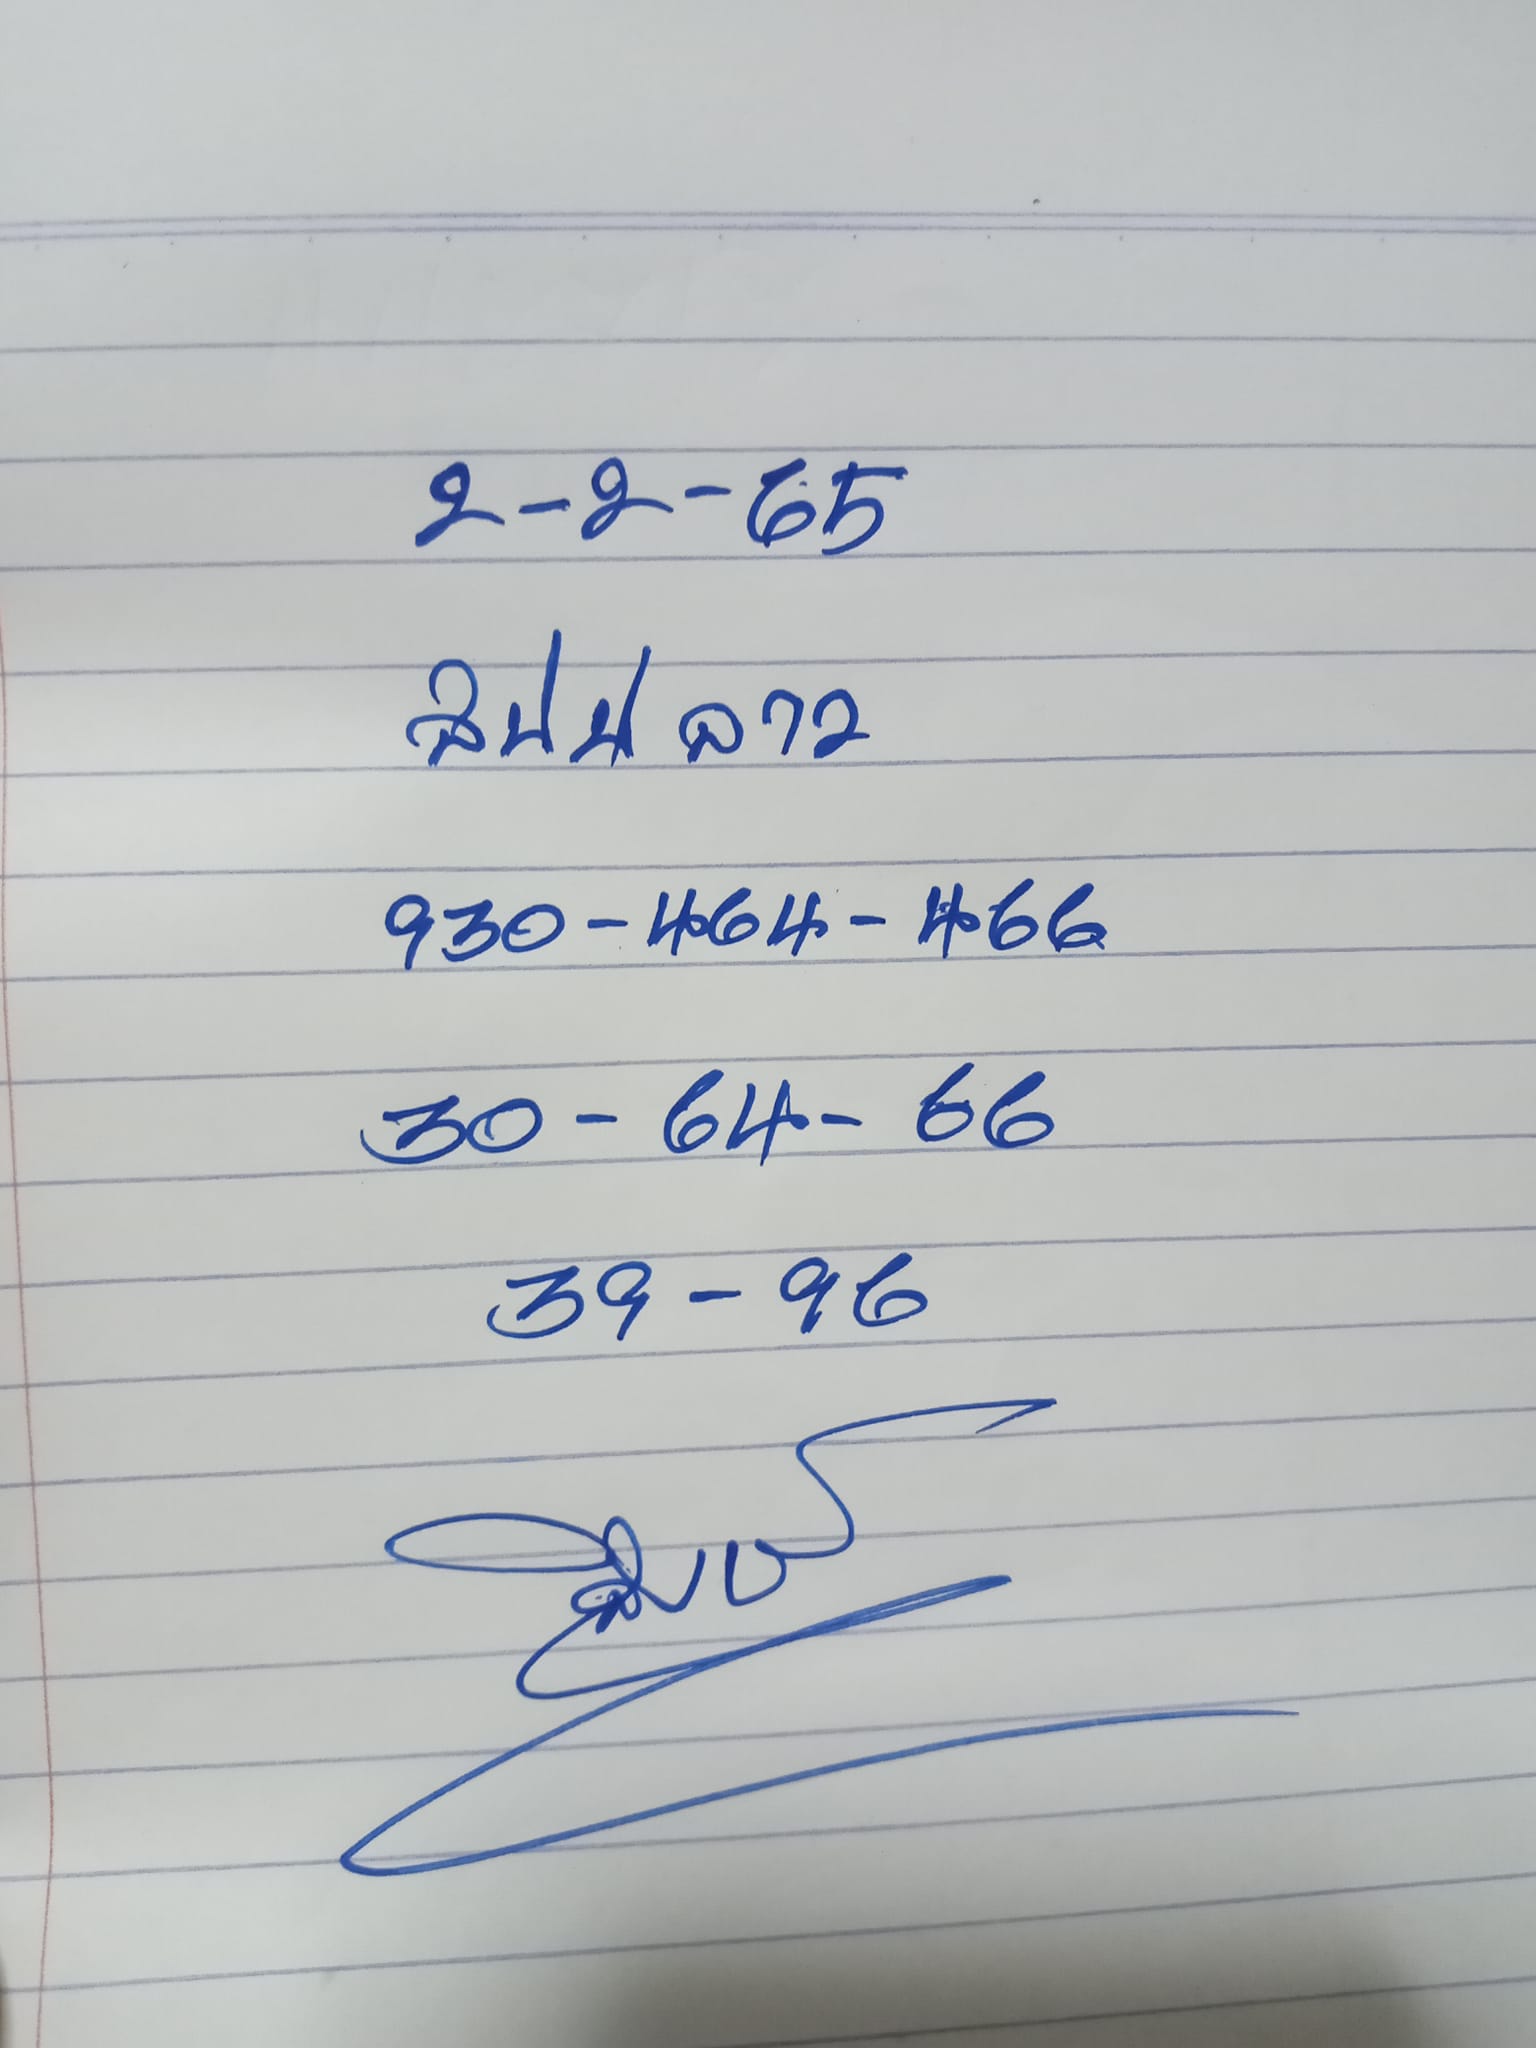 2-2-65
สปป ลาว
930-464-466
30-64-66
39-96